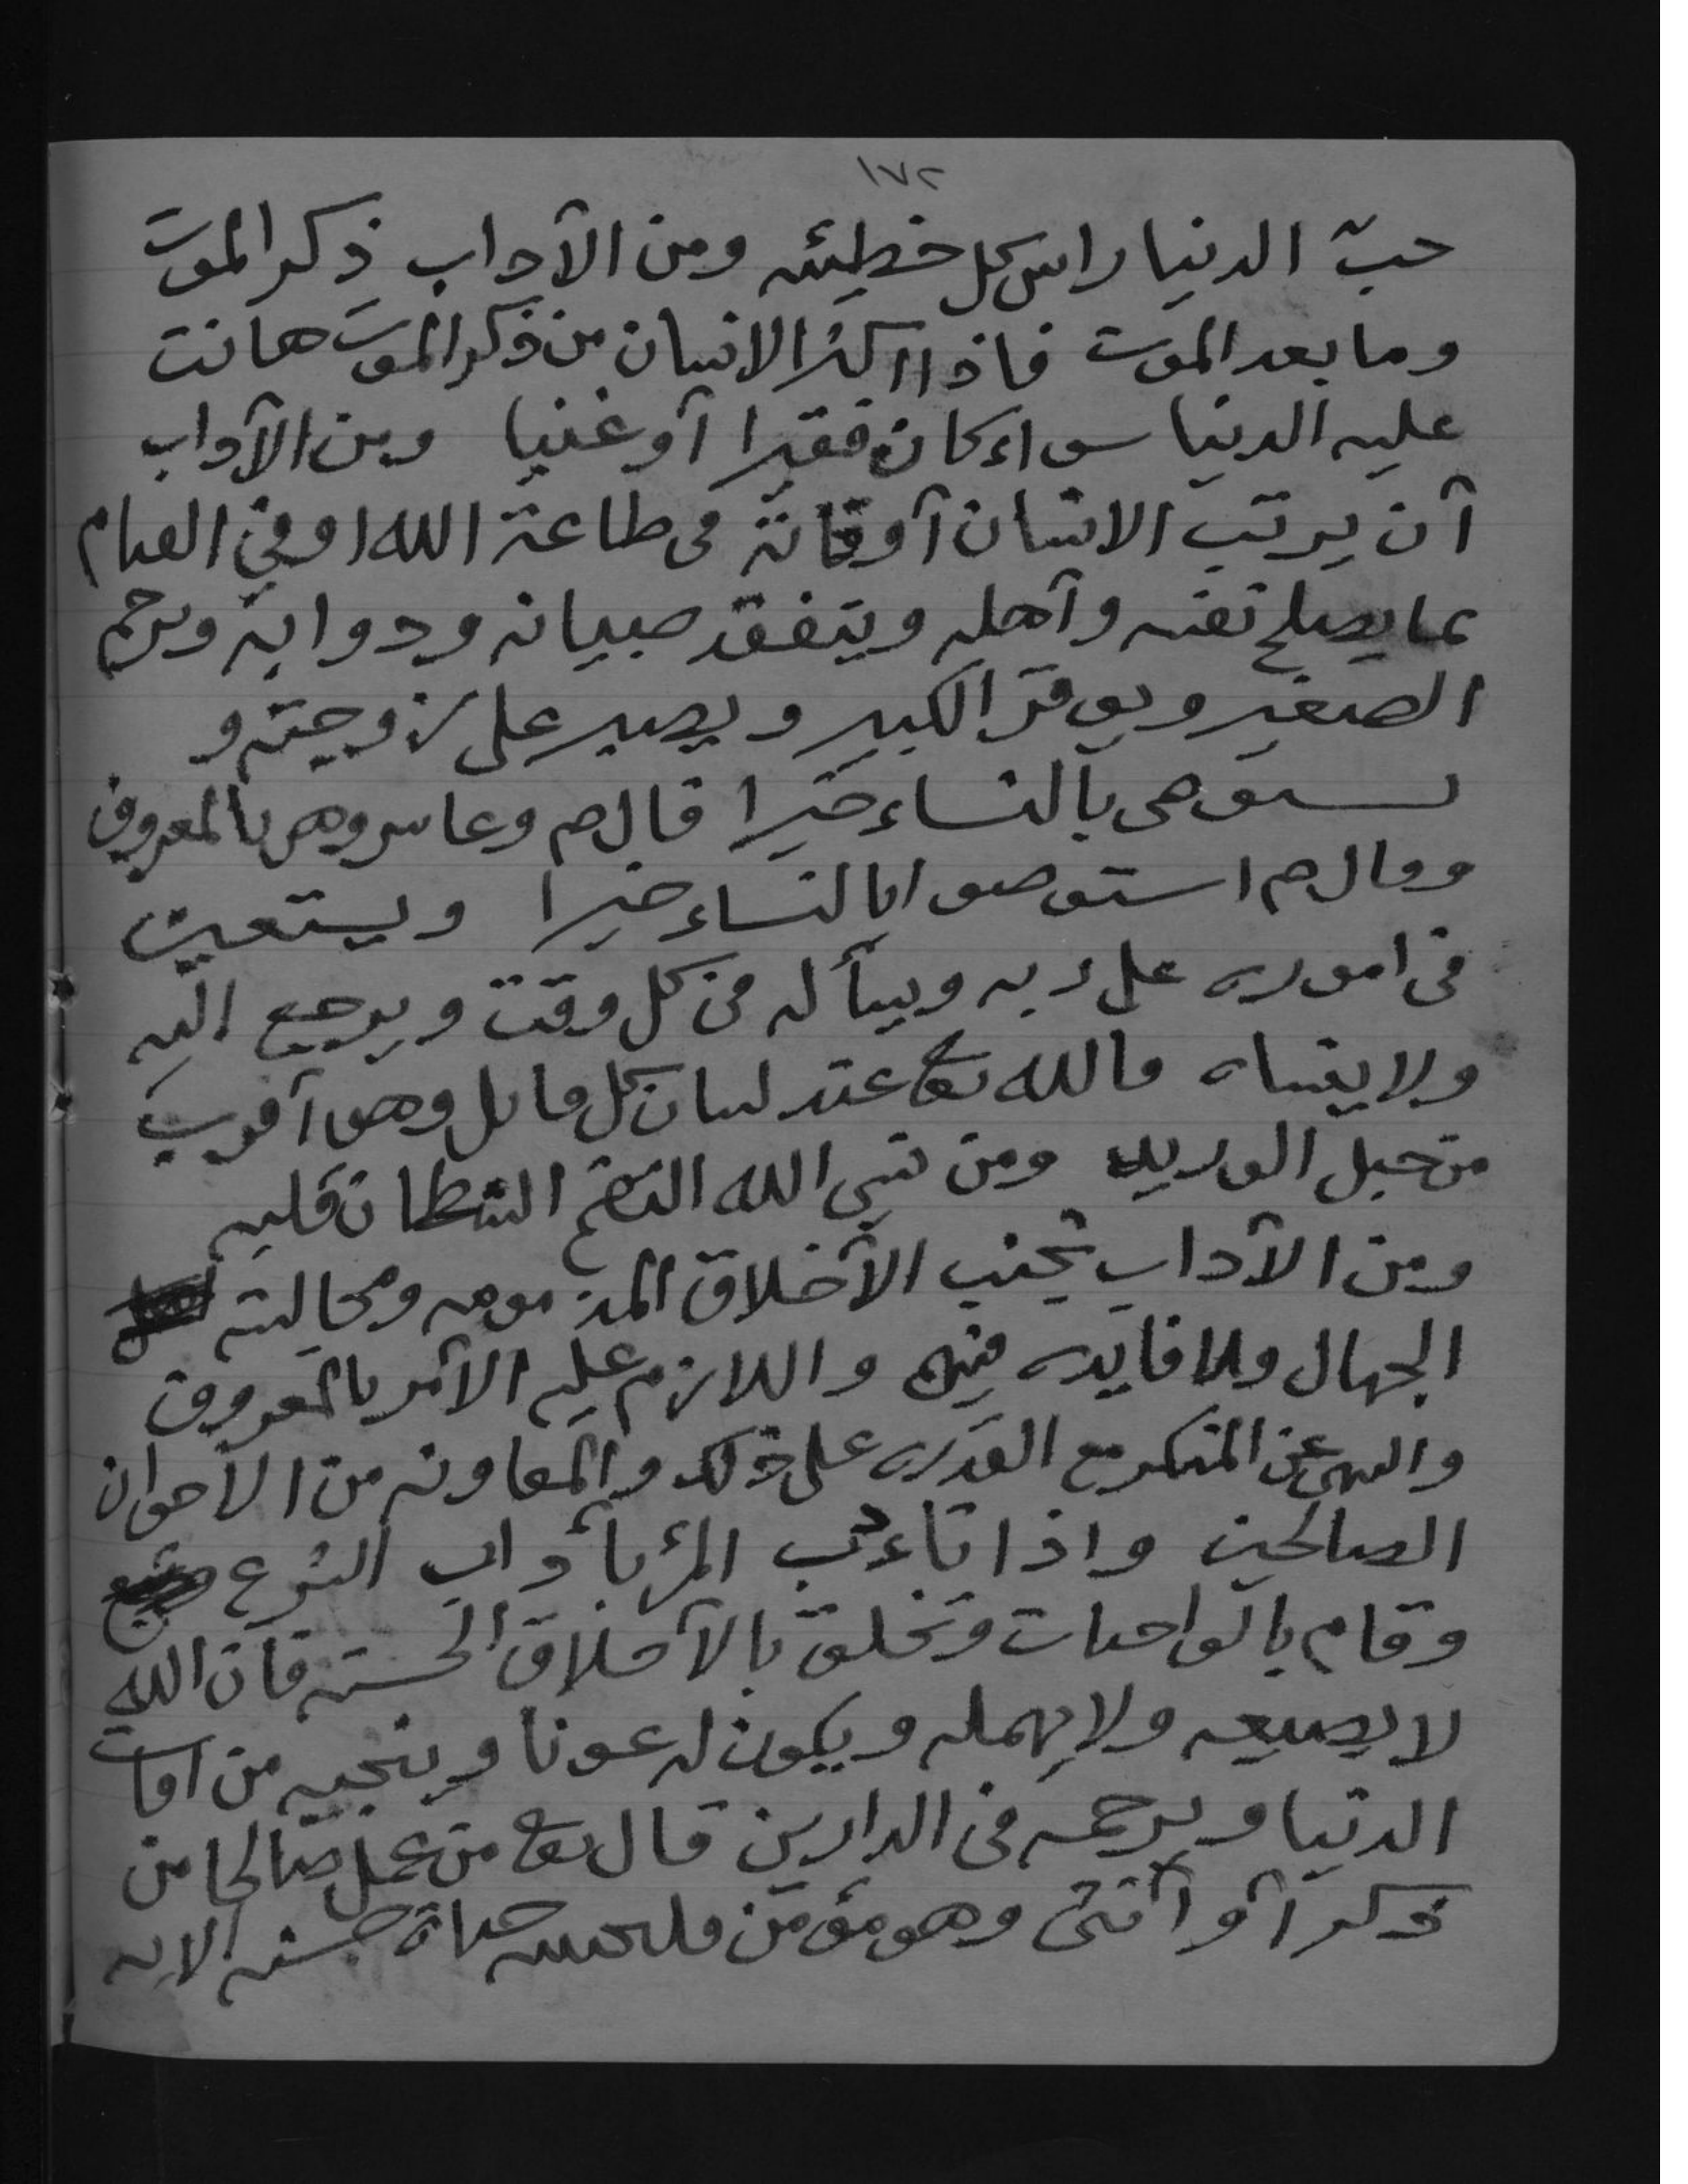 ١٧٢
حبّ الدنيا راس كل خطيئه ومن الآداب ذكر الموت
وما بعد الموت فاذا اكثر الانسان من ذكر الموت هانت
عليه الدنيا سواء كان فقيرا أو غنيا ومن الآداب
أن يرتب الانسان أوقاته في طاعة الله او في القيام
بما يصلح نفسه وأهله ويتفقد صبيانه ودوابه ويرحم
الصغير ويوقر الكبير ويصبر على زوجته و
يستوصى بالنساء خيرا قال م وعاشروهن بالمعروف
وقال م استوصوا بالنساء خيرا ويستعين
في اموره على ربه ويسأله في كل وقت ويرجع اليه
ولا ينساه فالله تع عند لسان كل قائل وهو أقرب
من حبل الوريد ومن نسي الله التقم الشطان قلبه
ومن الآداب تجنب الأخلاق المذمومه ومجالسة
الجهال ولا فايده فيهم واللازم عليه الأمر بالمعروف
والنهي عن المنكر مع القدره على ذلك والمعاونه من الاخوان
الصالحين واذا تاءدب المرأ بأداب الشرع
وقام بالواجبات وتخلق بالأخلاق الحسنه فان الله
لا يضيعه ولا يهمله ويكون له عونا وينجيه من افات
الدنيا ويرحمه في الدارين قال تع من عمل صالحا من
ذكر أو أنثى وهو مؤمن فلنحيينه حياة حسنه الايه